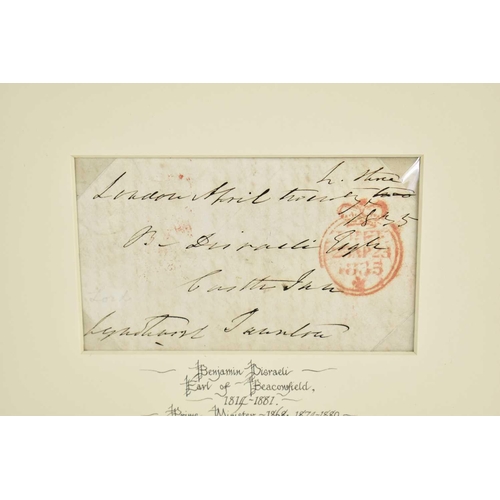 London April twenty two
three
1835
B. Disraeli Esqre
Castle Inn
Lyndhurst Taunton
FREE
AP 23
1835
Benjamin Disraeli
Earl of Beaconsfield,
1814~1881.
Prime Minister ~1868, 1874-1880